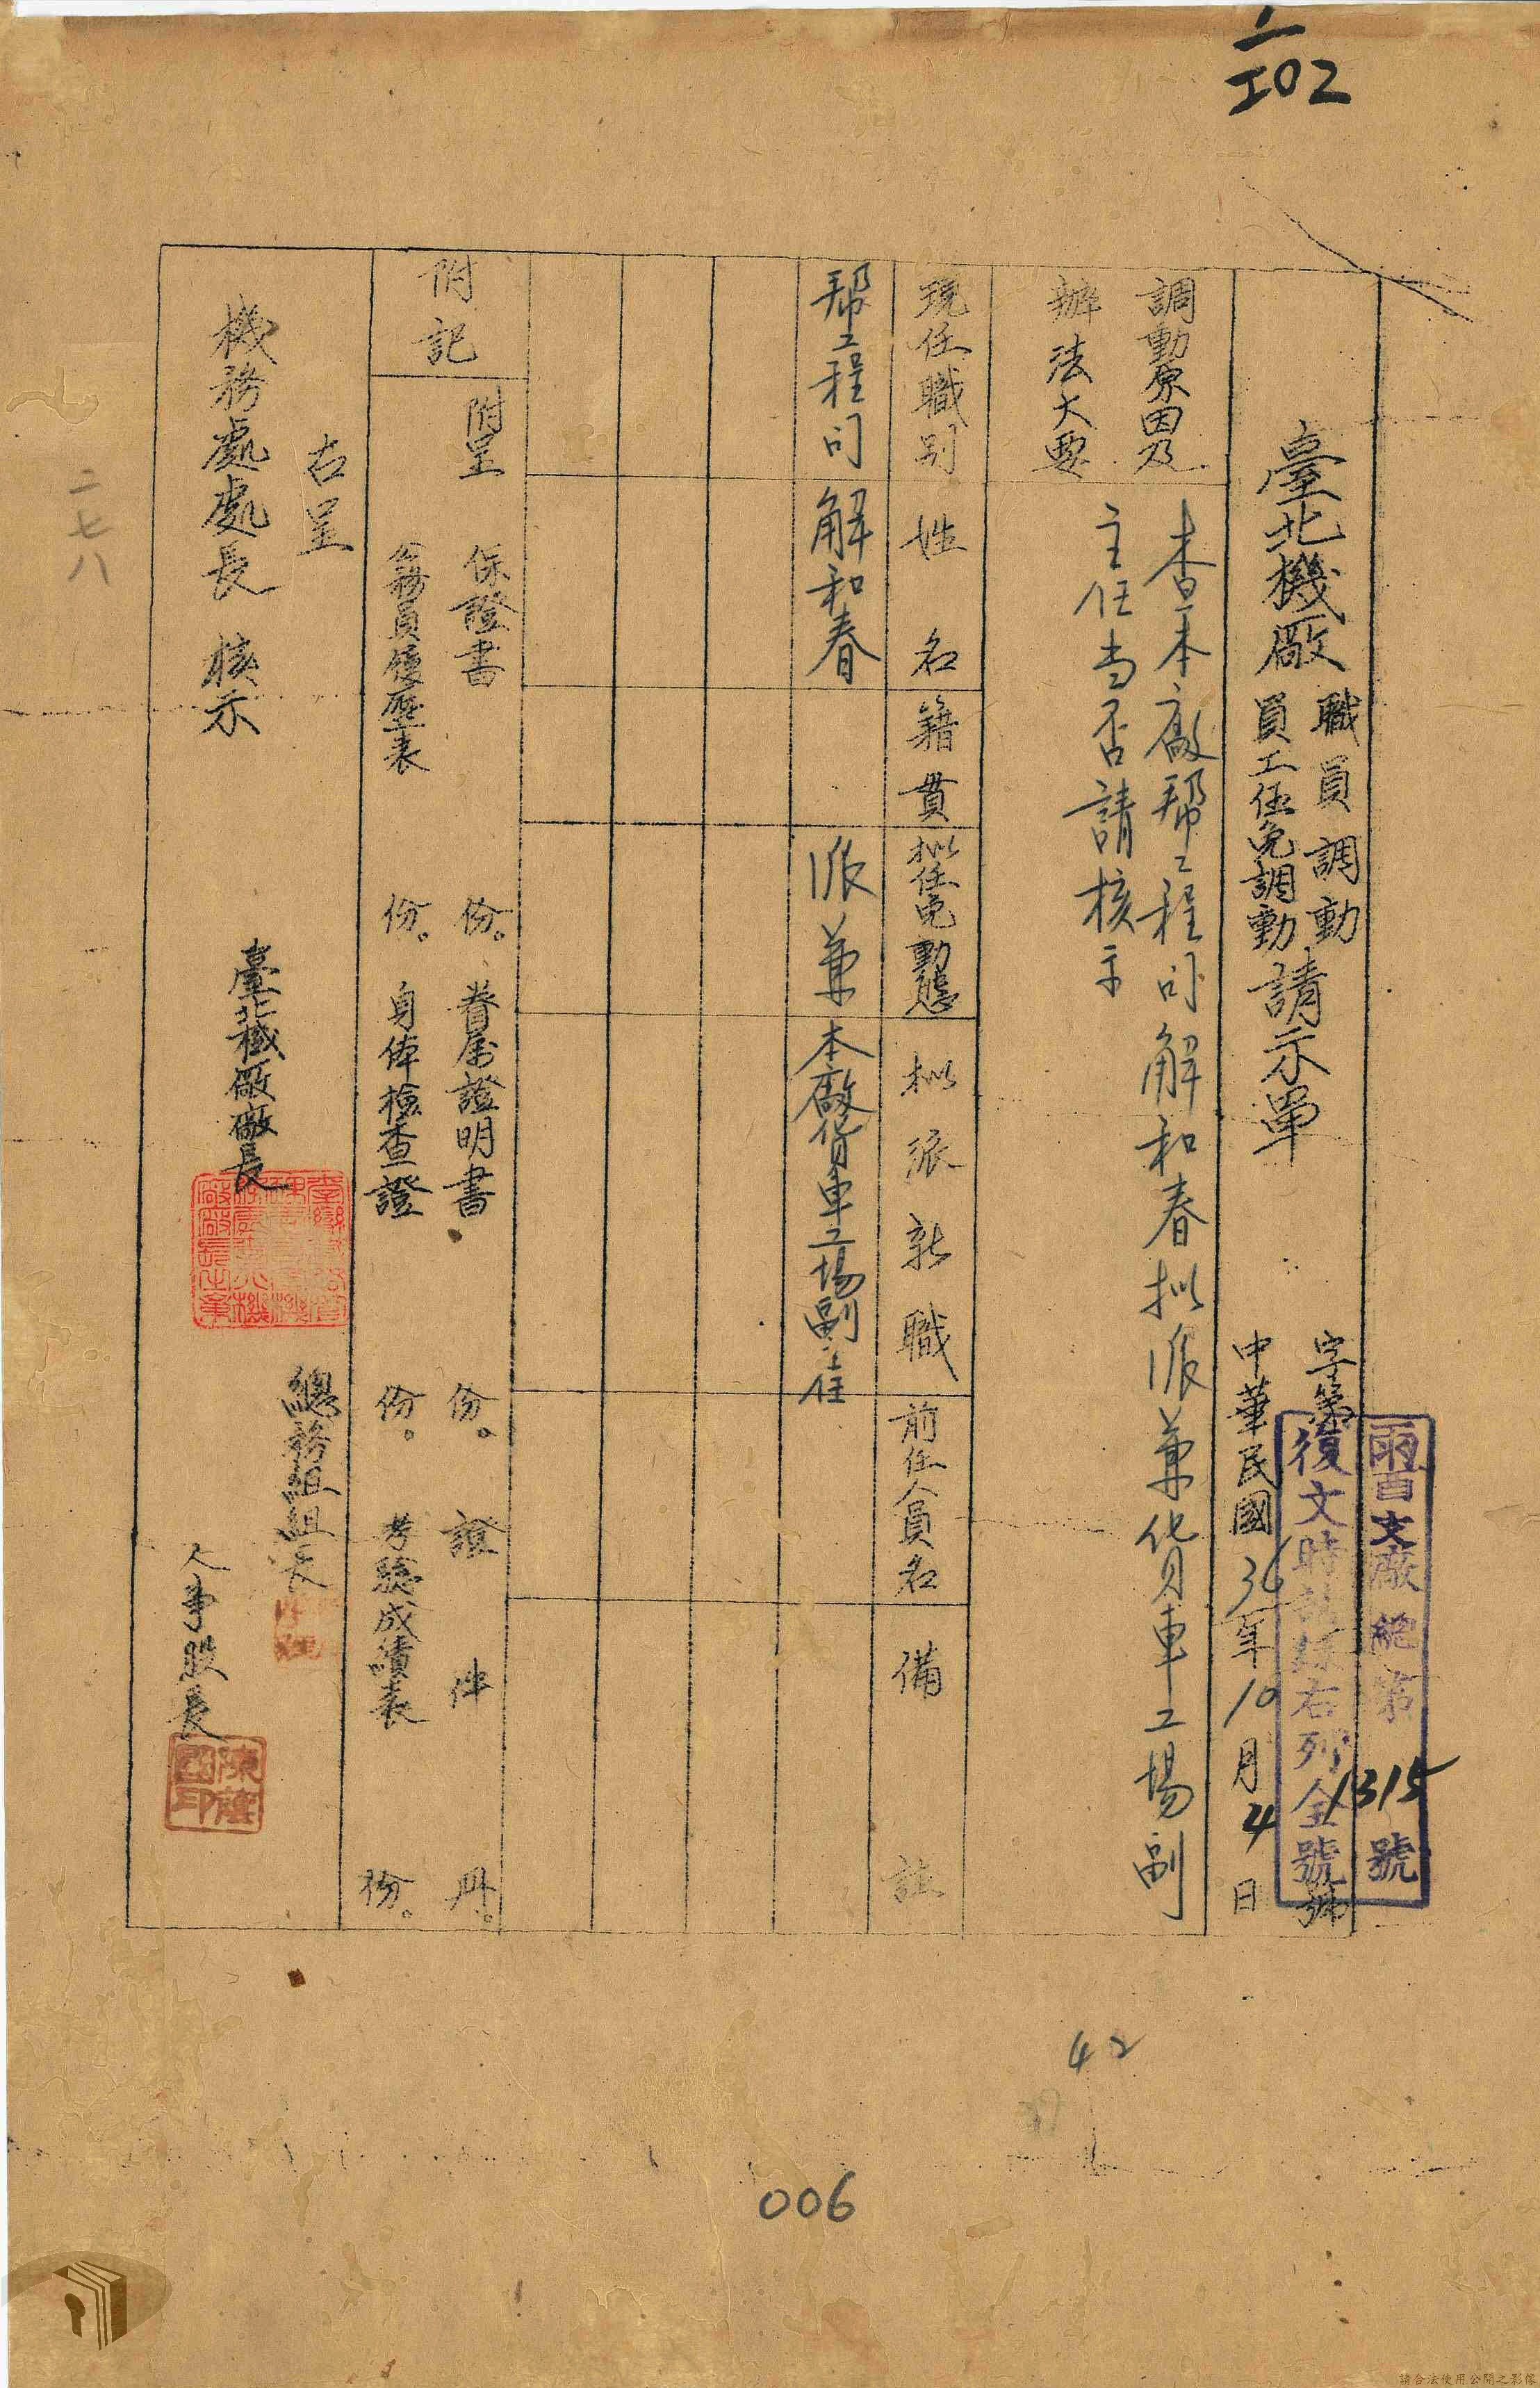 102
雨酉支廠總第1315號
復文時請録右列全號
字第 號
中華民國36年10月4日
臺北機廠 職員調動 員工任免調動 請示單
調動原因及
辦法大要
查本廠帮工程司解和春拟派兼貨車工場副
主任当否請核示
現任職別
姓名
籍貫
拟任免動態
拟派新職
前任人員名
備註
帮工程司
解和春
派兼
本廠貨車工場副主任
附記
附呈
保證書 份。眷屬證明書 份。證件 冊。
公務員履歷表 份。身体檢查證 份。考驗成績表 份。
右呈
機務處處長 核示
臺北機廠廠長
總務組組長
人事股長
二七八
42
006
請合法使用公開之影像